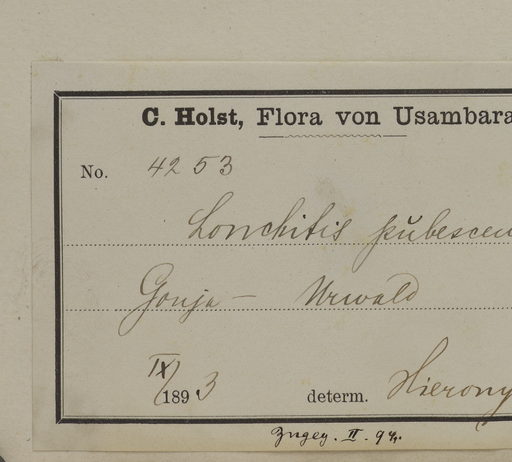 C. Holst, Flora von Usambara
No. 4253
Lonchitis pubescen
Gonja — Urwald
IX/1893 determ. Hierony
Zngeg. II. 94.